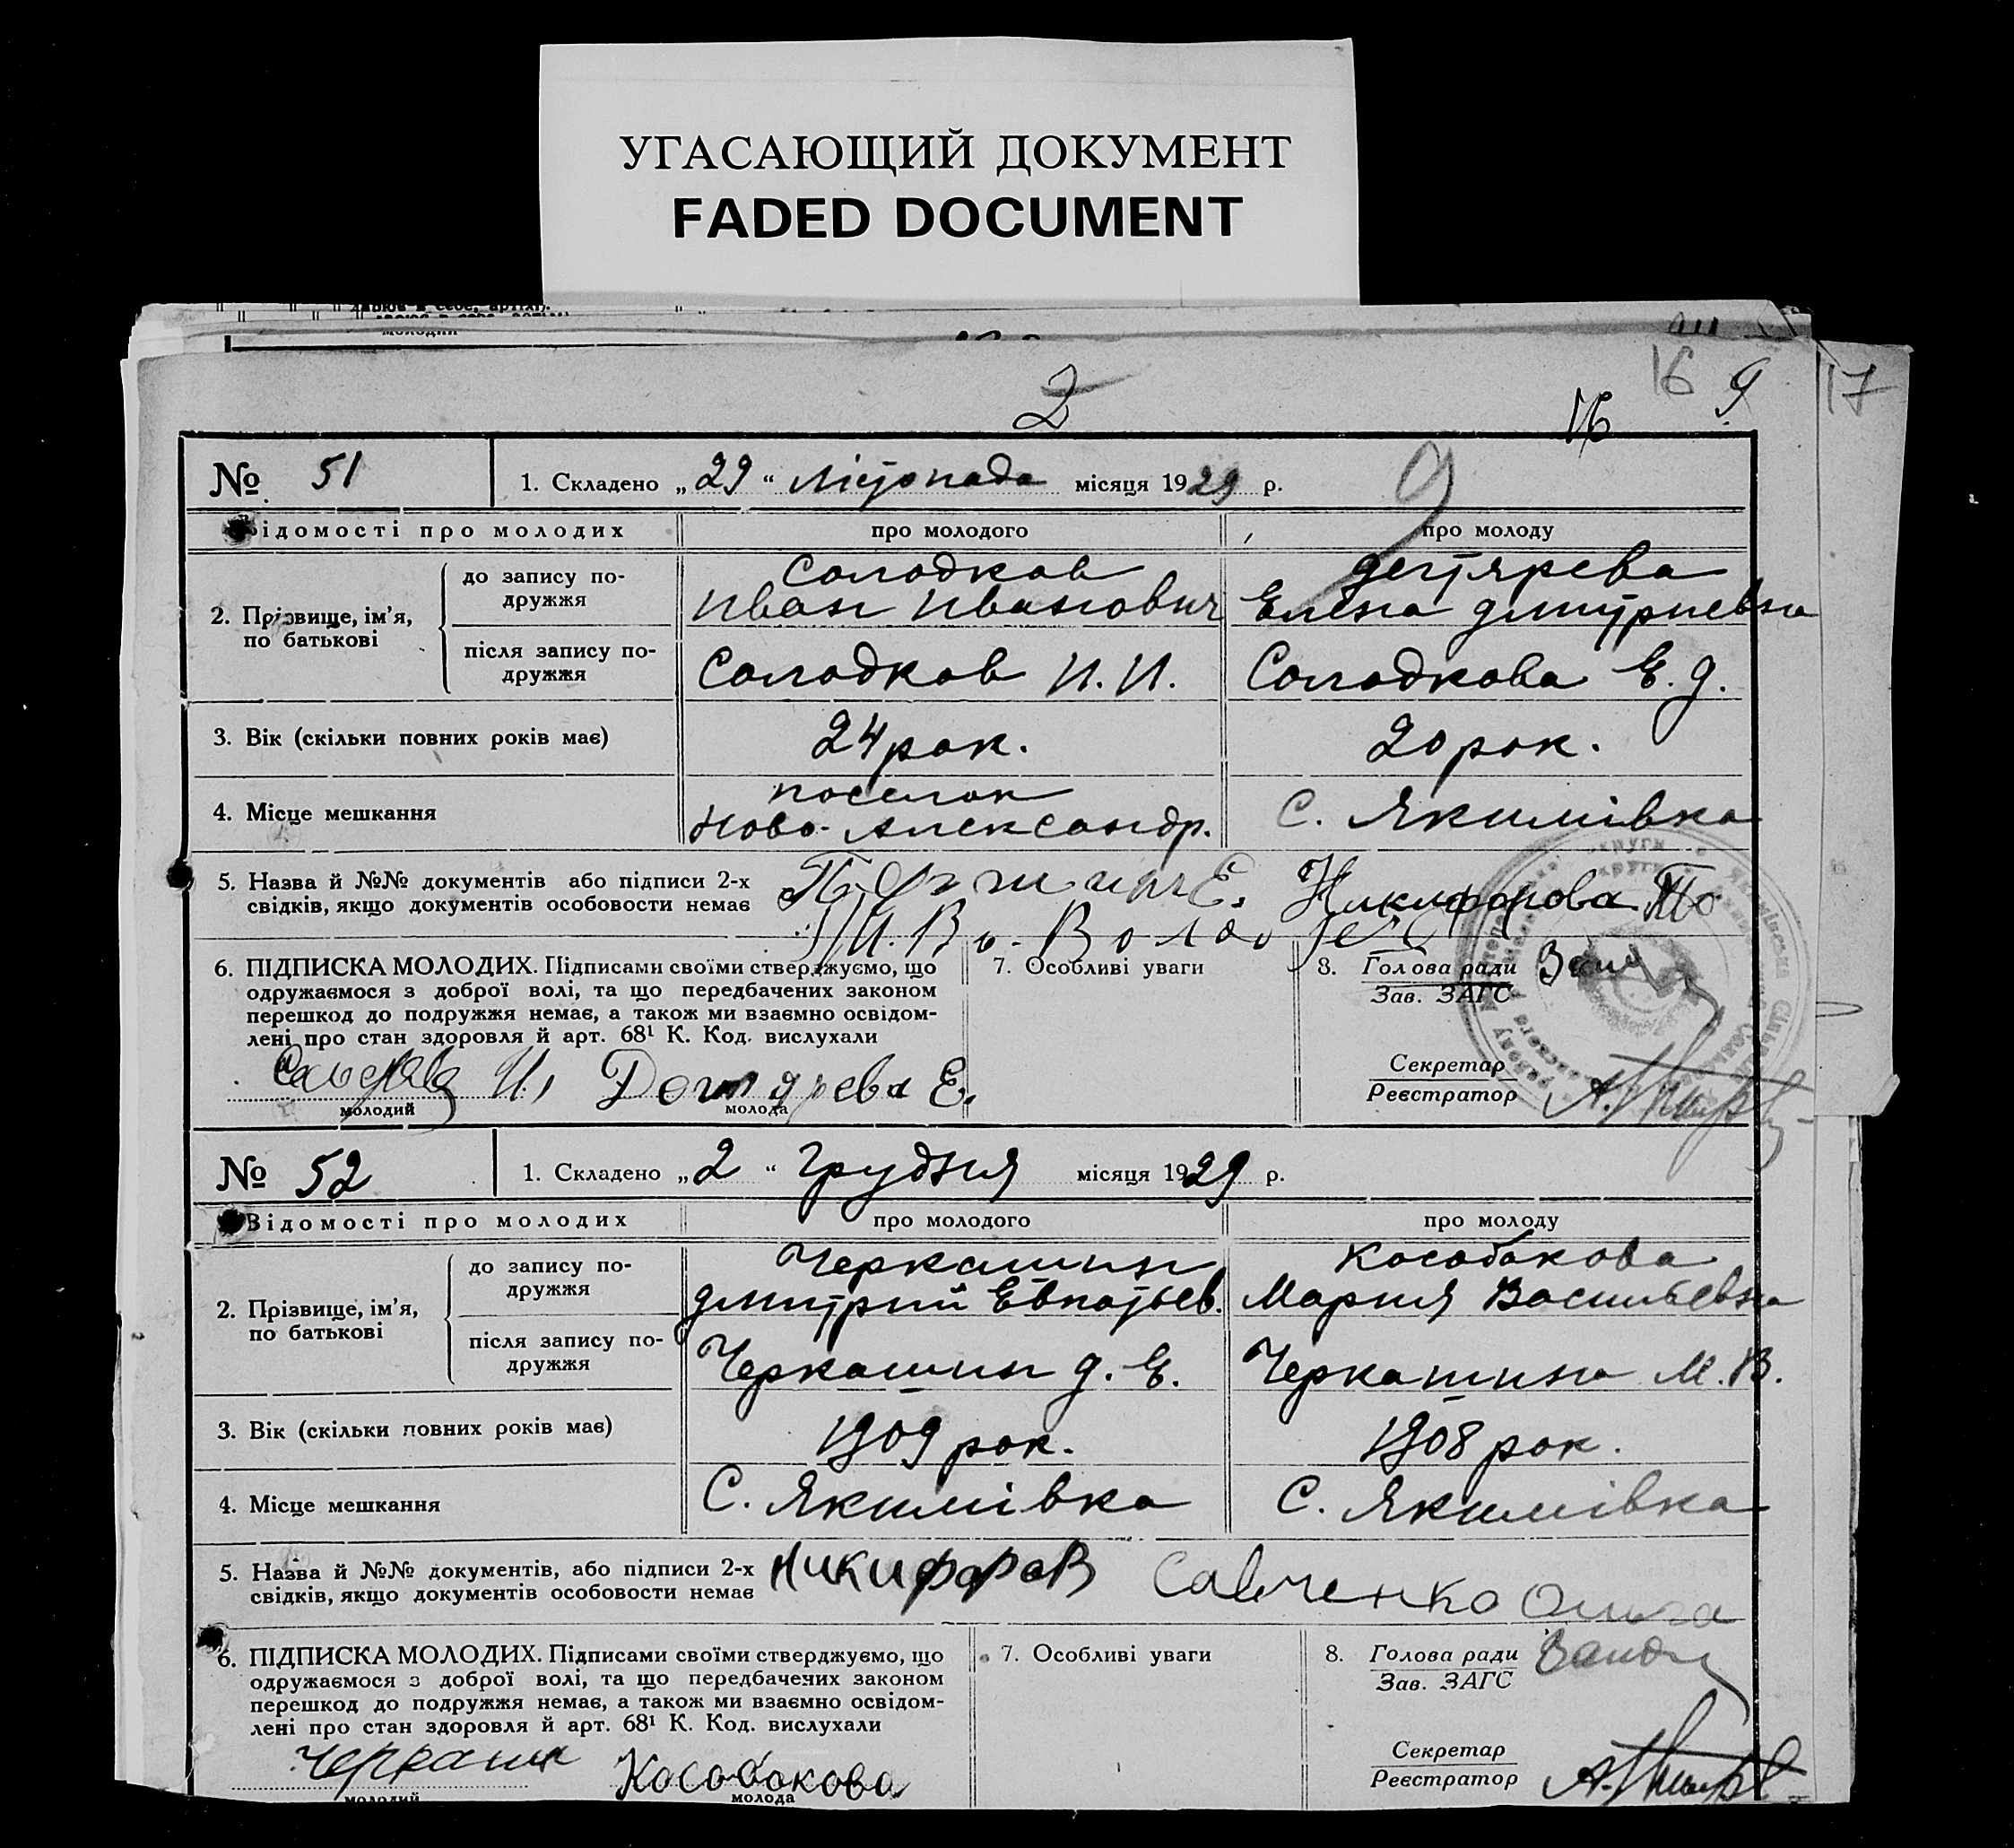 УГАСАЮЩИЙ ДОКУМЕНТ
FADED DOCUMENT
16 9 17
2 16
№ 51 1. Складено „29“ Лістопада місяця 1929 р. 9
Відомості про молодих про молодого про молоду
2. Прізвище, ім'я, по батькові
до запису подружжя
Солодков Дегтярева
Иван Иванович Елена Дмитриевна
після запису подружжя
Солодков И. И. Солодкова Е. Д.
3. Вік (скільки повних років має) 24 рок. 20 рок.
4. Місце мешкання поселок С. Якимівка
Ново-Александр.
5. Назва й №№ документів або підписи 2-х Никифорова
свідків, якщо документів особовости немає
6. ПІДПИСКА МОЛОДИХ. Підписами своїми стверджуємо, що
одружаємося з доброї волі, та що передбачених законом
перешкод до подружжя немає, а також ми взаємно освідом-
лені про стан здоровля й арт. 68¹ К. Код. вислухали
И. Дегтярева Е.
молодий молода
7. Особливі уваги
8. Голова ради
Зав. ЗАГС
Секретар
Реєстратор
№ 52 1. Складено „2“ Грудня місяця 1929 р.
Відомості про молодих про молодого про молоду
2. Прізвище, ім'я, по батькові
до запису подружжя
Черкашин Кособокова
Дмитрий Евпатьев. Мария Васильевна
після запису подружжя
Черкашин Д. Е. Черкашина М. В.
3. Вік (скільки повних років має) 1909 рок. 1908 рок.
4. Місце мешкання С. Якимівка С. Якимівка
5. Назва й №№ документів, або підписи 2-х Никифоров Савченко Ольга
свідків, якщо документів особовости немає
6. ПІДПИСКА МОЛОДИХ. Підписами своїми стверджуємо, що
одружаємося з доброї волі, та що передбачених законом
перешкод до подружжя немає, а також ми взаємно освідом-
лені про стан здоровля й арт. 68¹ К. Код. вислухали
Черкашин Кособокова
молодий молода
7. Особливі уваги
8. Голова ради
Зав. ЗАГС
Секретар
Реєстратор